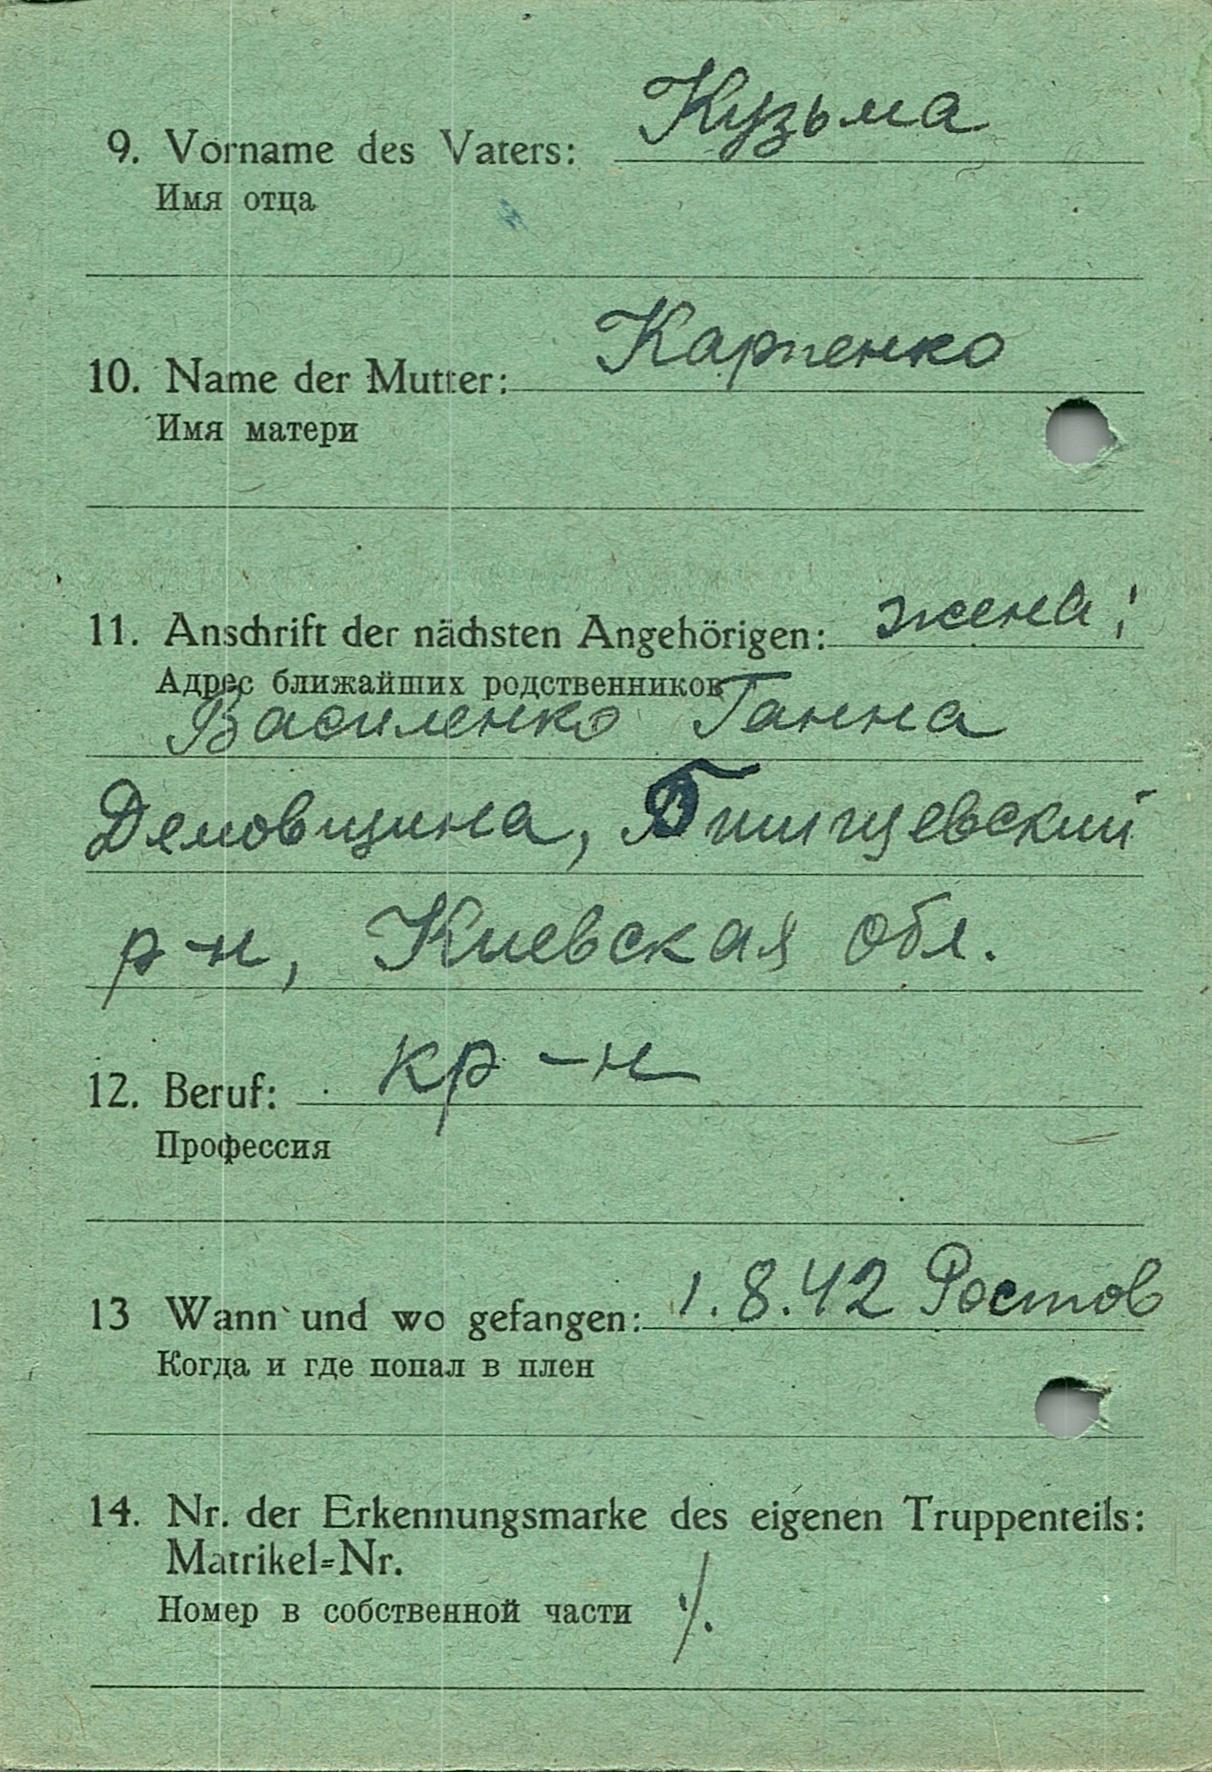 9. Vorname des Vaters: Кузьма
Имя отца
10. Name der Mutter: Карпенко
Имя матери
11. Anschrift der nächsten Angehörigen: жена:
Адрес ближайших родственников
Василенко Ганна
Демовщина,
р-н, Киевская обл.
12. Beruf: кр-н
Профессия
13 Wann und wo gefangen: 1.8.42 Ростов
Когда и где попал в плен
14. Nr. der Erkennungsmarke des eigenen Truppenteils:
Matrikel=Nr.
Номер в собственной части ·/.